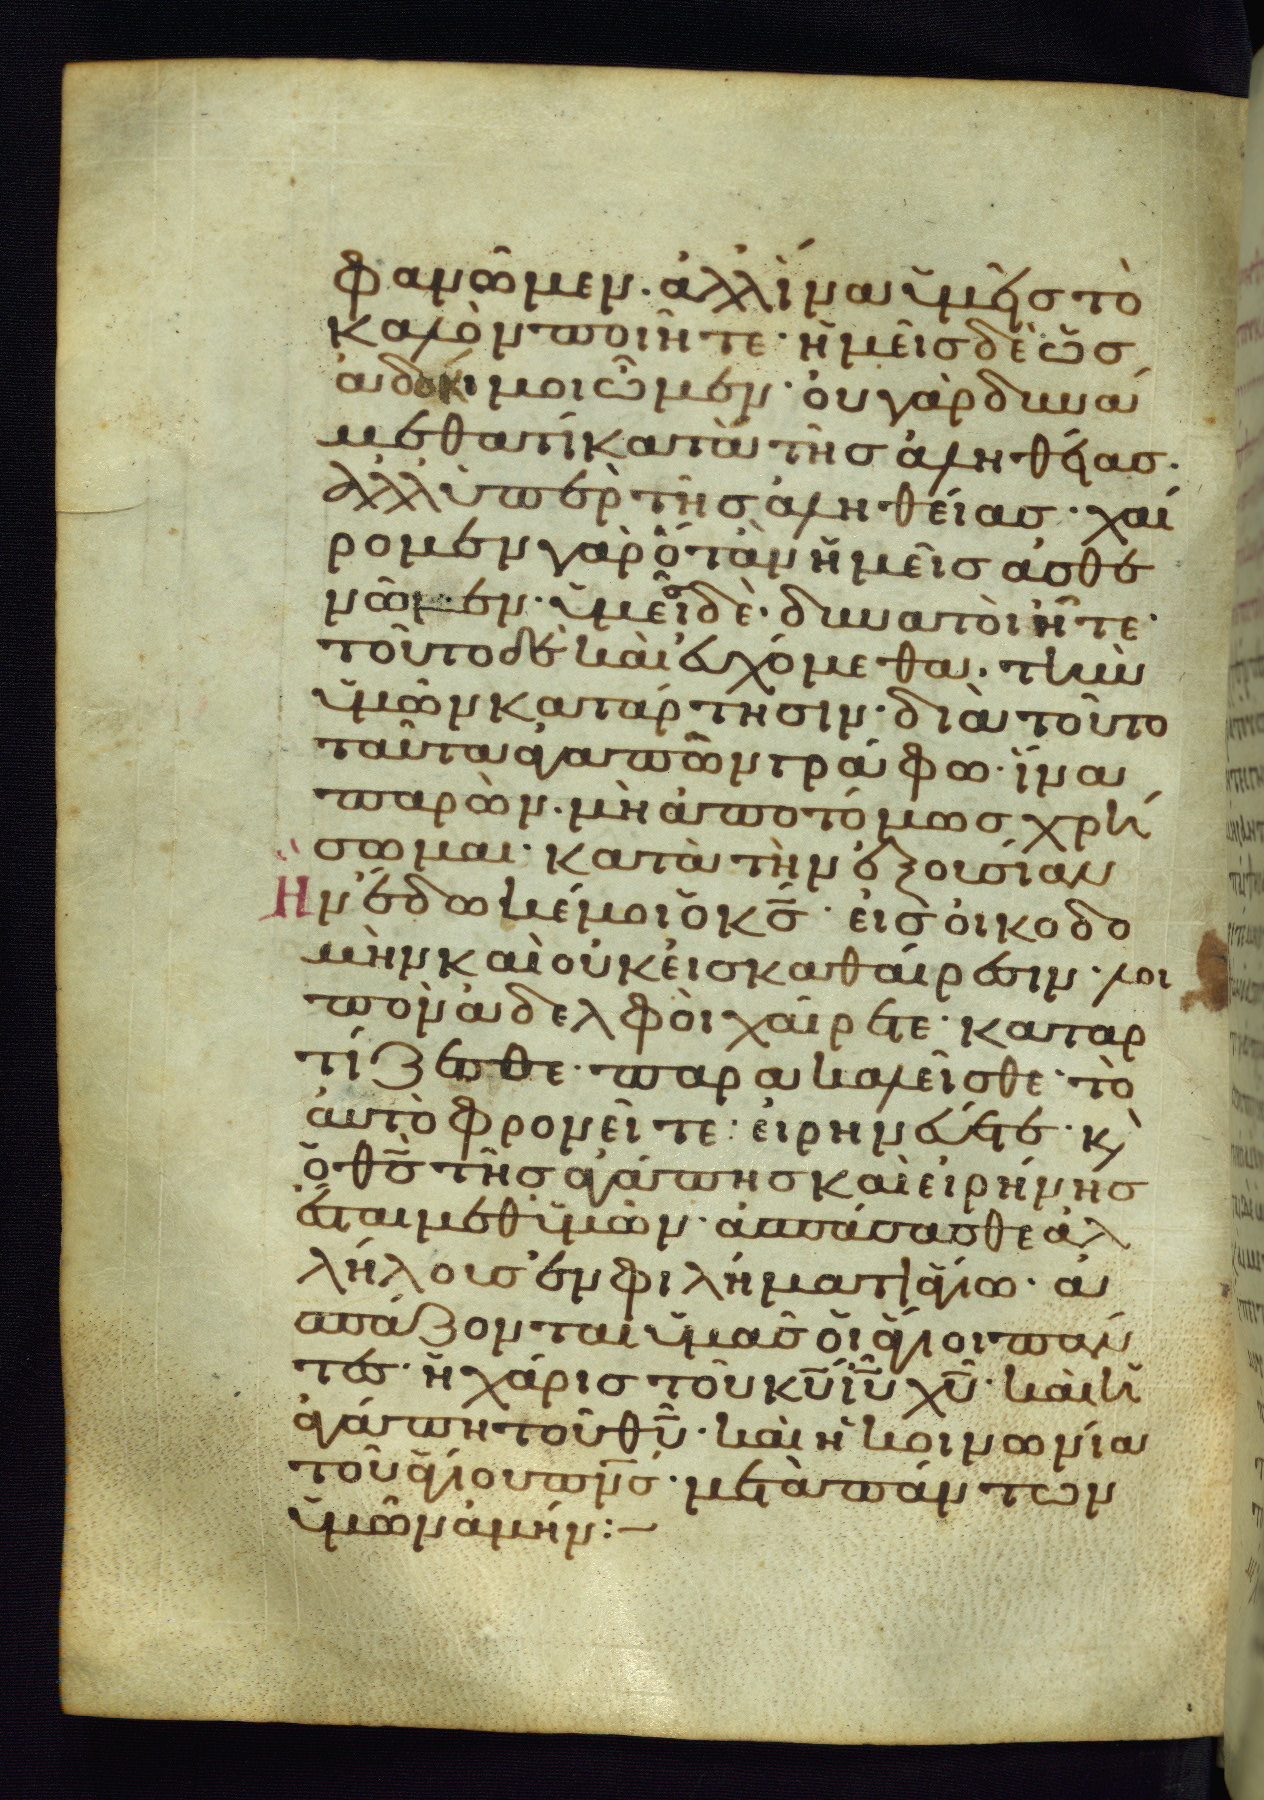 φανῶμεν· ἀλλ ἵνα ὑμεῖς τὸ
καλὸν ποιῆτε· ἡμεῖς δὲ ὡς
ἀδόκιμοι ὦμεν· οὐ γὰρ δυνά
μεθα τὶ κατὰ τῆς ἀληθείας·
ἀλλ ὑπὲρ τῆς ἀληθείας· χαί
ρομεν γὰρ ὅτὰν ἡμεῖς ἀσθε
νῶμεν· ὑμεῖς δὲ· δυνατοὶ ἦτε·
τοῦτο δὲ καὶ ἐυχόμεθα· τὴν
ὑμῶν κατάρτησιν· διὰ τοῦτο
ταῦτα ἀπὼν γράφω· ἵνα
παρὼν· μὴ ἀποτόμως χρή
σωμαι· κατὰ τὴν ἐξουσίαν
Ἣν ἔδωκέ μοι ὁ κς· εἰς οἰκοδο
μὴν καὶ οὐκ εἰς καθαίρεσιν· λοι
πὸν ἀδελφοὶ χαίρετε· καταρ
τίζεσθε· παρακαλεῖσθε· τὸ
ἀυτὸ φρονεῖτε· εἰρηνέυετε· κ
ὁ θς τῆς ἀγάπης καὶ εἰρήνης
ἔσται μεθ ὑμῶν· ἀσπάσασθε ἀλ
λήλους ἐν φιλήματι ἁγίω· ἀ
σπάζονται ὑμᾶς οἱ ἅγιοι πάν
τες· ἡ χάρις τοῦ κυ ιυ χυ· καὶ ἡ
ἀγάπη τοῦ θυ· καὶ ἡ κοινωνία
τοῦ ἁγίου πνς· μετὰ πάντων
ὑμῶν ἀμήν:—